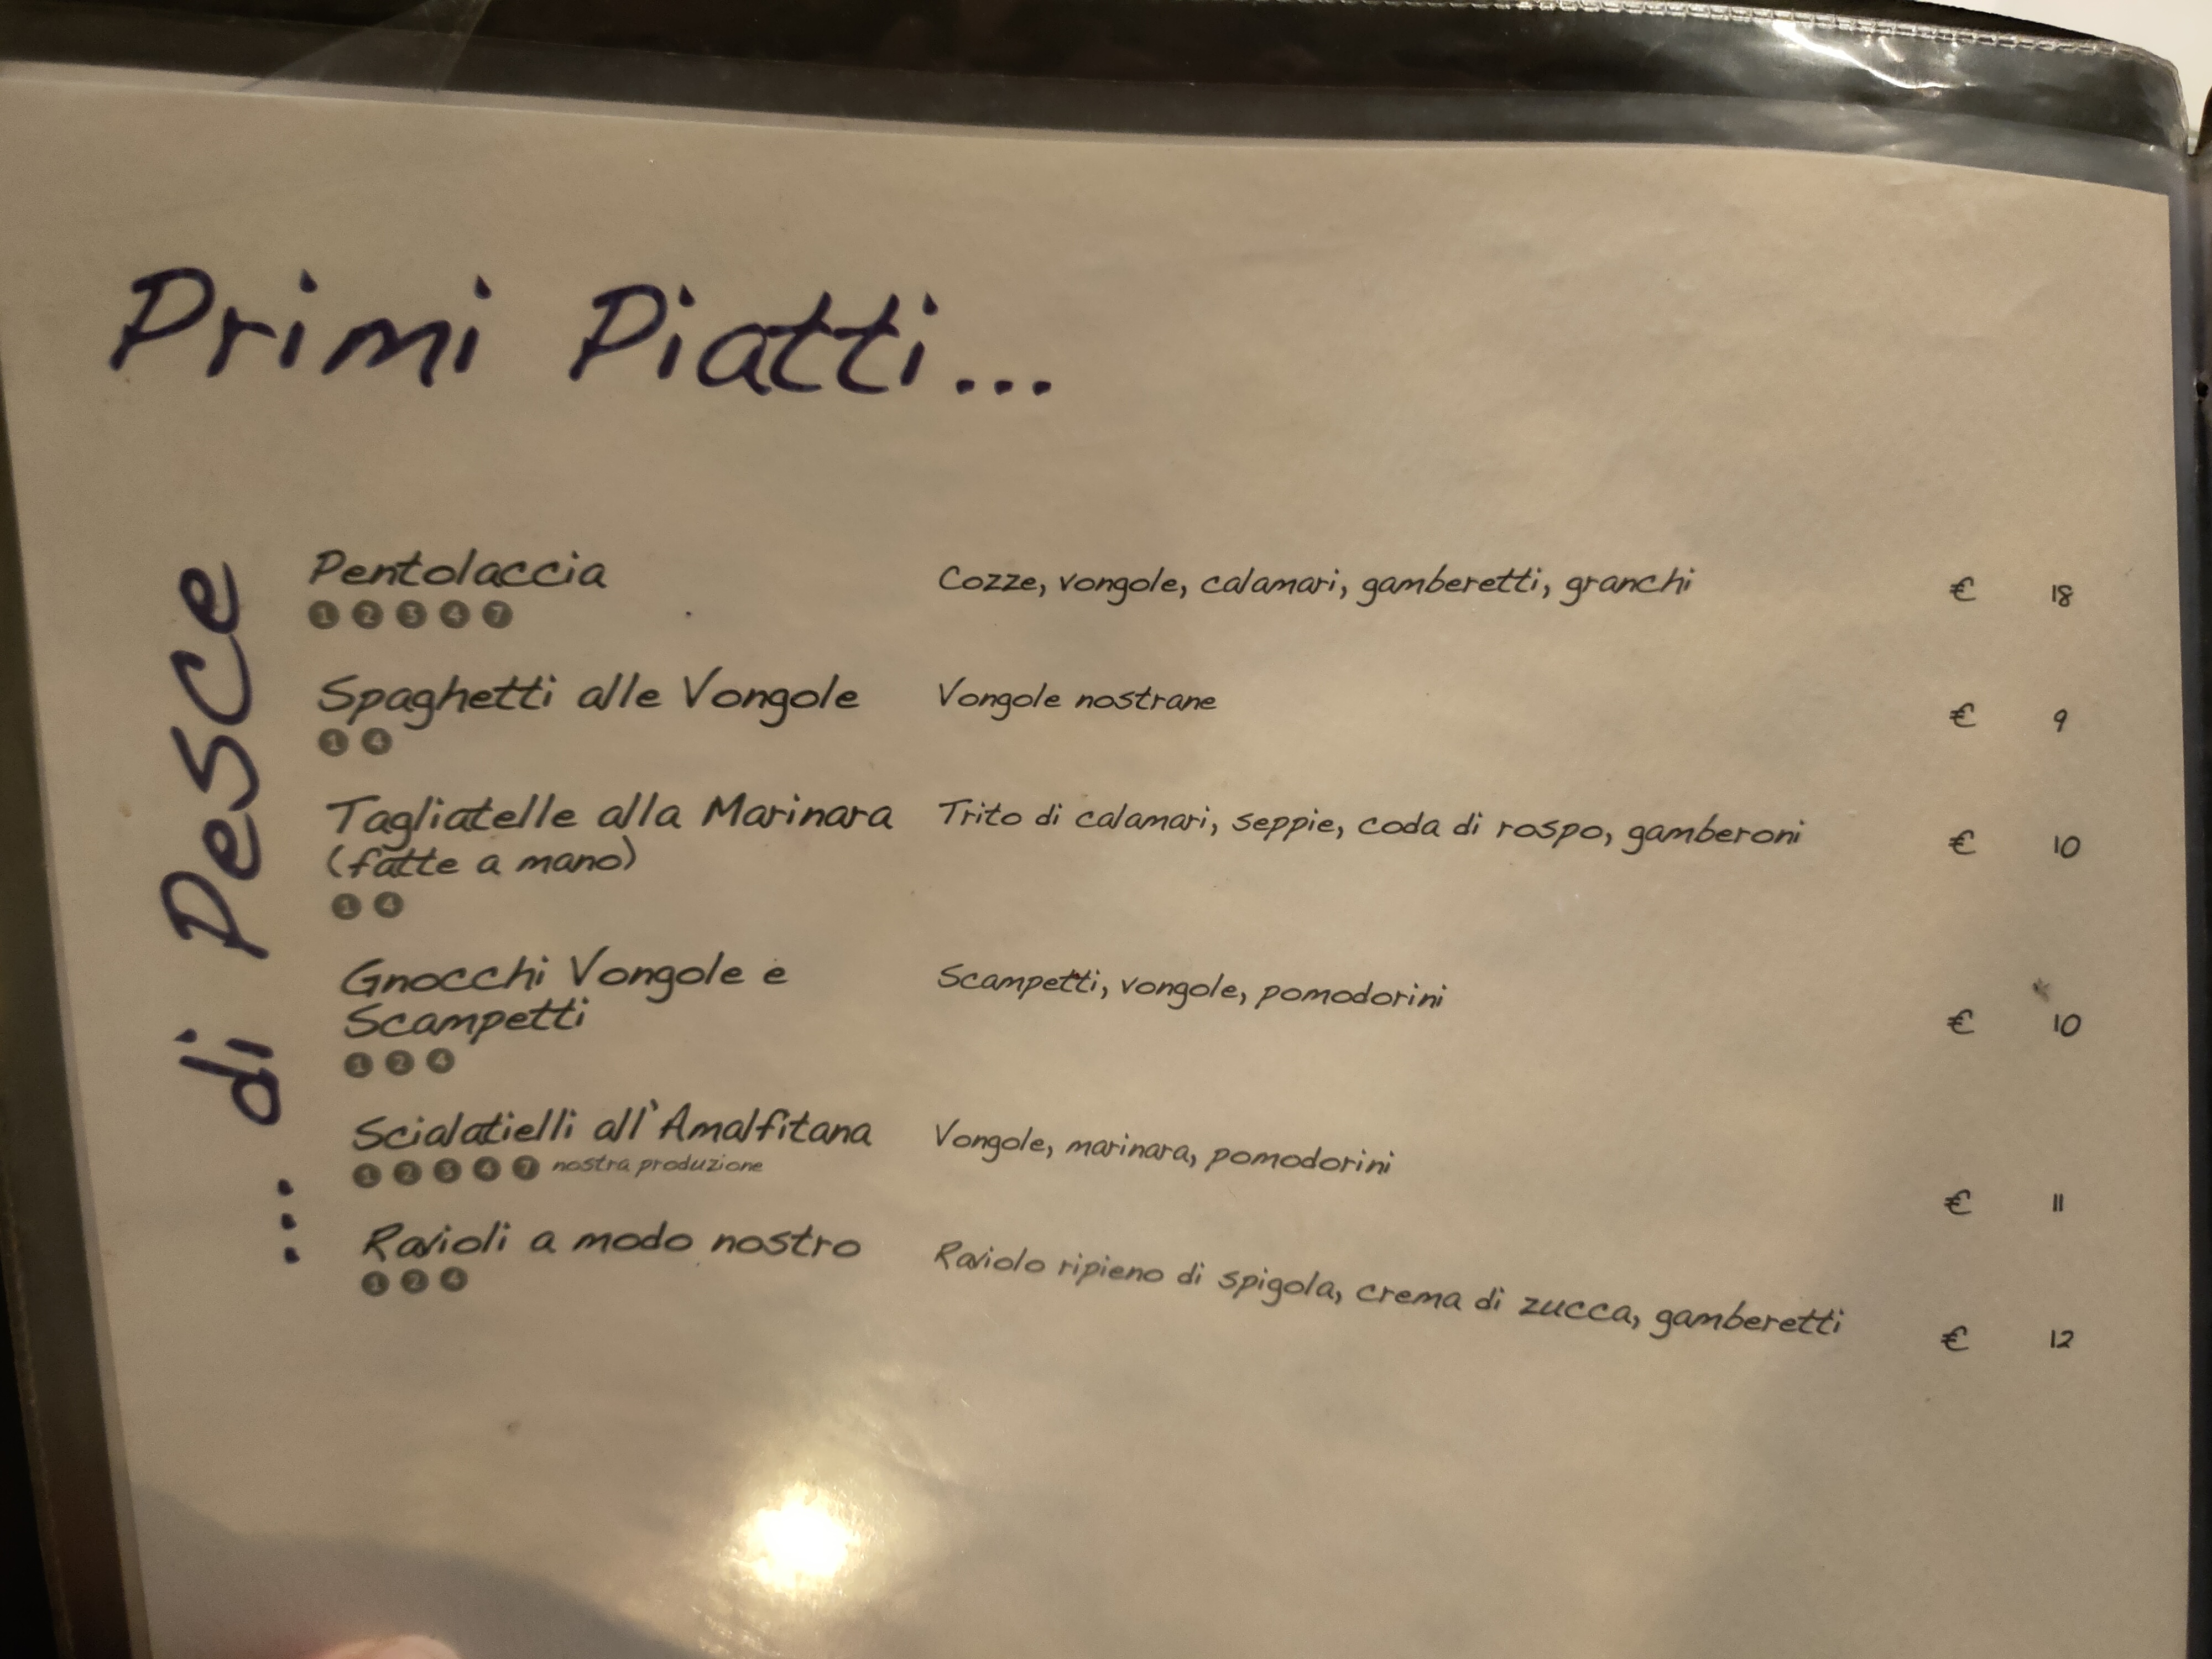 Primi Piatti...
... di Pesce
Pentolaccia Cozze, vongole, calamari, gamberetti, granchi € 18
1 2 3 4 7
Spaghetti alle Vongole Vongole nostrane € 9
1 4
Tagliatelle alla Marinara Trito di calamari, seppie, coda di rospo, gamberoni € 10
(fatte a mano)
1 4
Gnocchi Vongole e Scampetti, vongole, pomodorini € 10
Scampetti
1 2 4
Scialatielli all'Amalfitana Vongole, marinara, pomodorini € 11
1 2 3 4 7 nostra produzione
Ravioli a modo nostro Raviolo ripieno di spigola, crema di zucca, gamberetti € 12
1 2 4